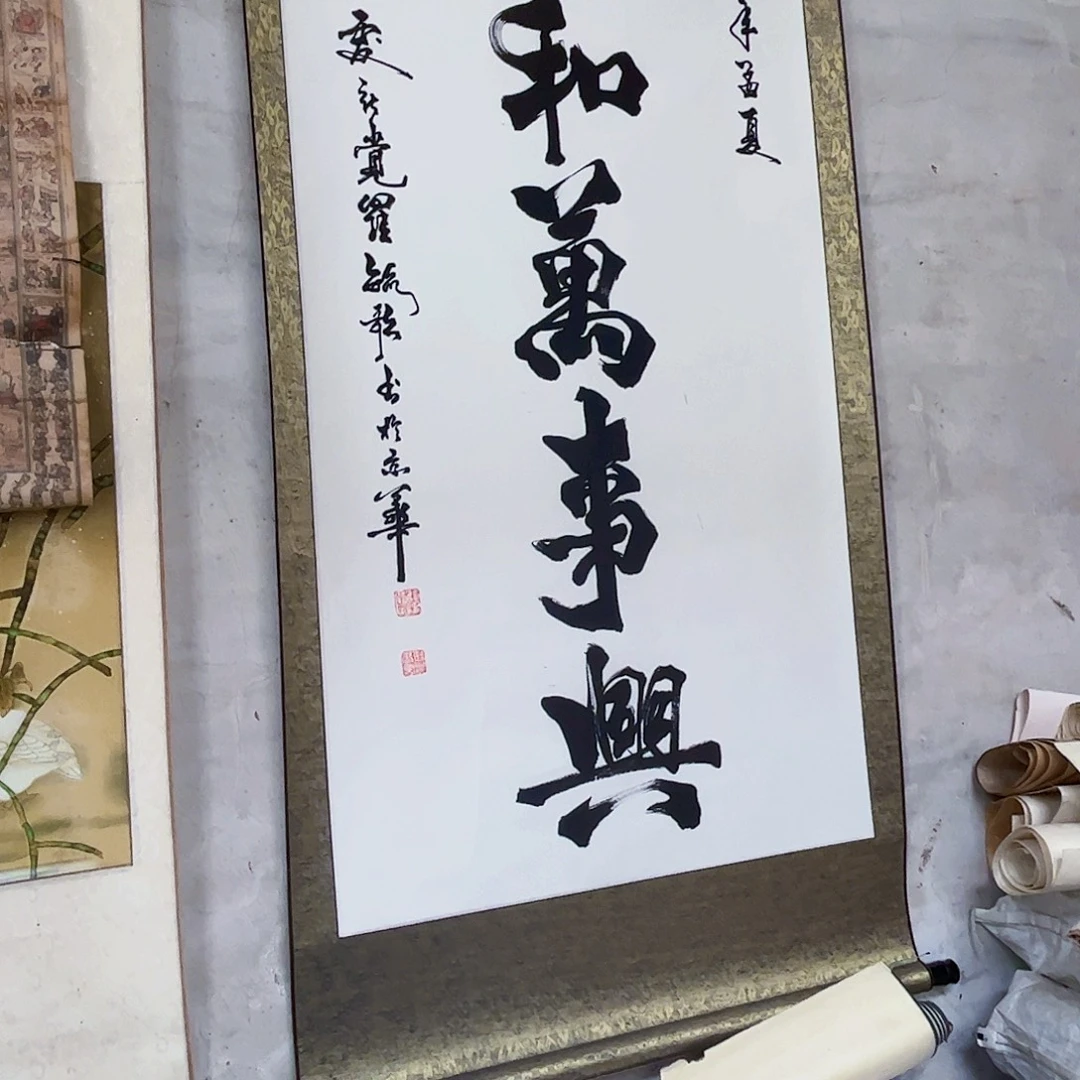 年孟夏
和萬事興
愛新覺羅毓歌书於京華